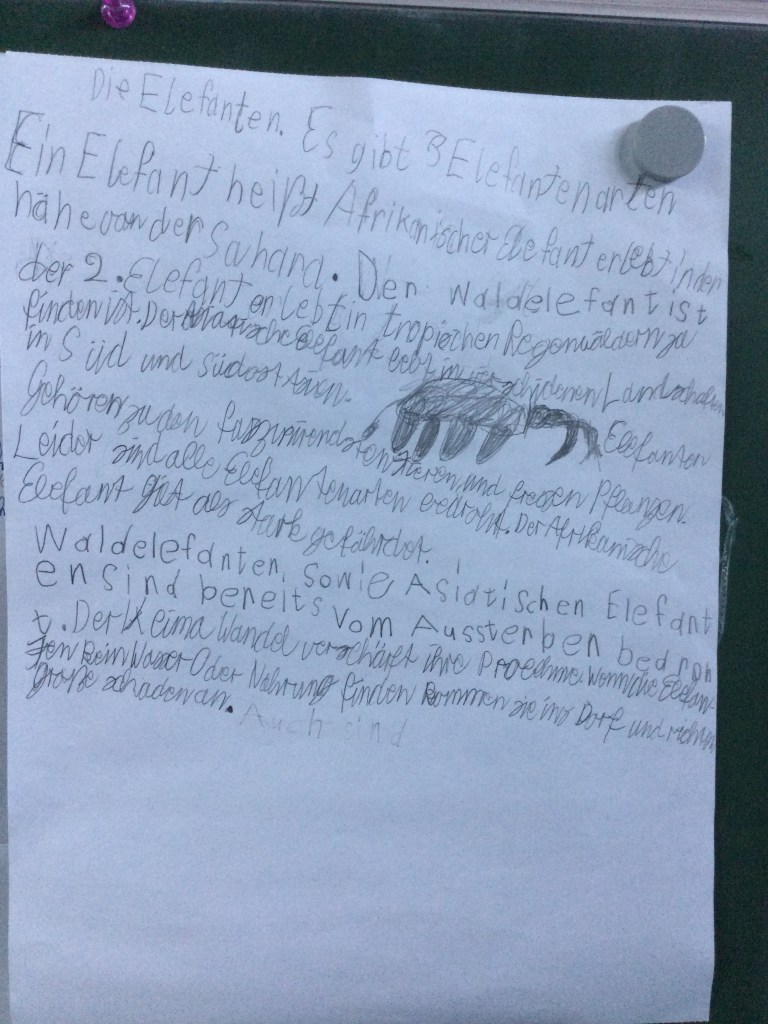 Die Elefanten. Es gibt 3 Elefantenarten
Ein Elefant heißt Afrikanischer Elefant er lebt in der
nähe von der Sahara. Der Waldelefant ist
der 2. Elefant er lebt in tropischen Regenwäldern zu
finden ist. Der Asiatische Elefant lebt in verschidenen Landschaften
in Süd und südost Asien.
Elefanten
Gehören zu den faszinirendsten tieren und fressen Pflanzen.
Leider sind alle Elefantenarten bedroht. Der Afrikanische
Elefant gilt als stark gefährdet.
Waldelefanten, sowie Asiatischen Elefant
en sind bereits vom Aussterben bedroh
t. Der Kleima Wandel verschärft ihre Proeehme. Wenn die Elefan
ten kein Wasser Oder Nahrung finden kommen sie ins Dorf und richten
große schaden an. Auch sind